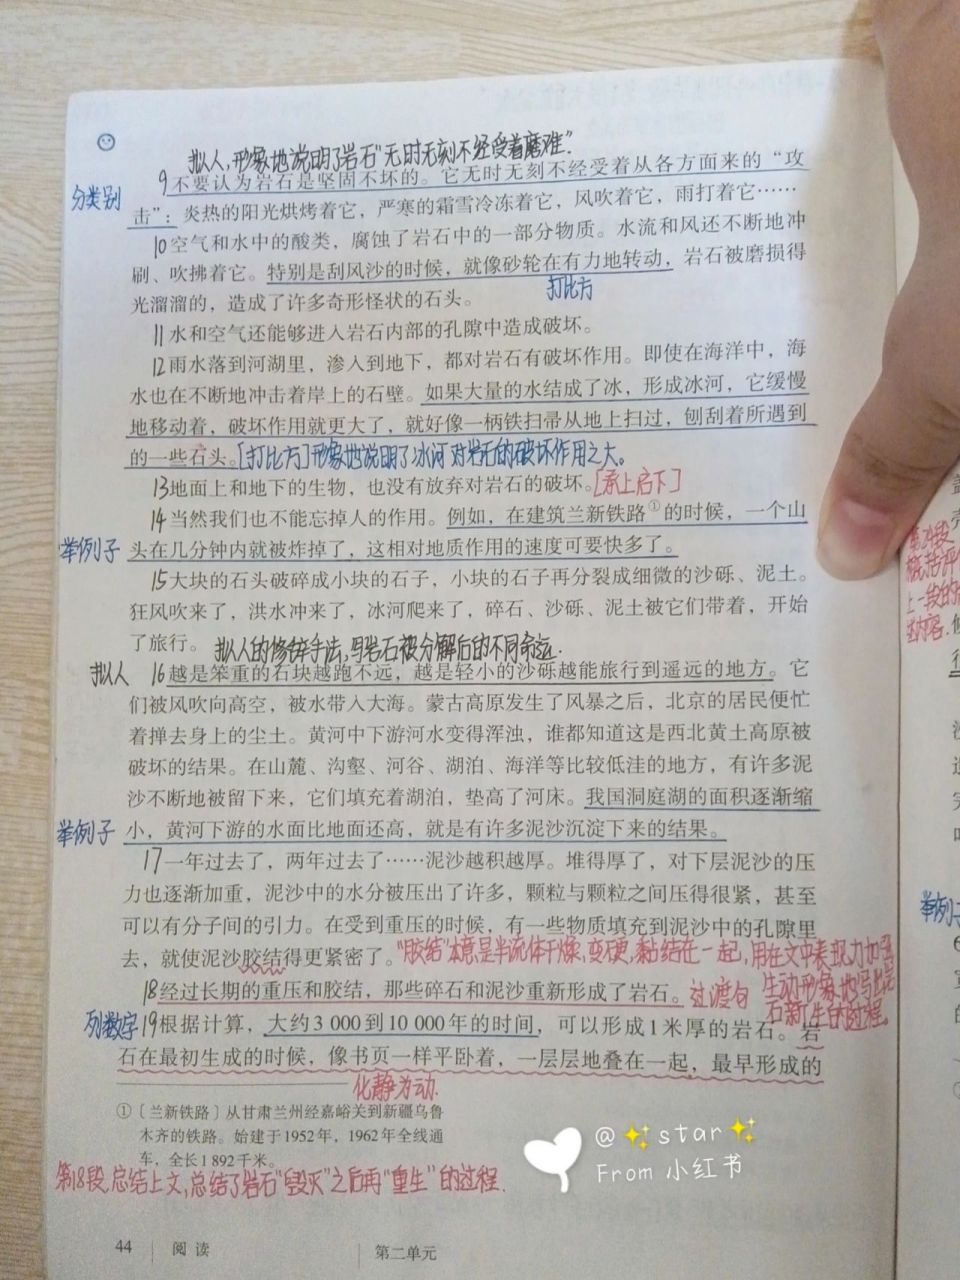 拟人,形象地说明了岩石"无时无刻不经受着磨难".
分类别
9不要认为岩石是坚固不坏的。它无时无刻不经受着从各方面来的“攻
击”：炎热的阳光烘烤着它，严寒的霜雪冷冻着它，风吹着它，雨打着它……
10空气和水中的酸类，腐蚀了岩石中的一部分物质。水流和风还不断地冲
刷、吹拂着它。特别是刮风沙的时候，就像砂轮在有力地转动，岩石被磨损得
光溜溜的，造成了许多奇形怪状的石头。
打比方
11水和空气还能够进入岩石内部的孔隙中造成破坏。
12雨水落到河湖里，渗入到地下，都对岩石有破坏作用。即使在海洋中，海
水也在不断地冲击着岸上的石壁。如果大量的水结成了冰，形成冰河，它缓慢
地移动着，破坏作用就更大了，就好像一柄铁扫帚从地上扫过，刨刮着所遇到
的一些石头。[打比方]形象地说明了冰河对岩石的破坏作用之大。
13地面上和地下的生物，也没有放弃对岩石的破坏。[承上启下]
14当然我们也不能忘掉人的作用。例如，在建筑兰新铁路①的时候，一个山
举例子
头在几分钟内就被炸掉了，这相对地质作用的速度可要快多了。
15大块的石头破碎成小块的石子，小块的石子再分裂成细微的沙砾、泥土。
狂风吹来了，洪水冲来了，冰河爬来了，碎石、沙砾、泥土被它们带着，开始
了旅行。 拟人的修辞手法,写岩石被分解后的不同命运.
拟人
16越是笨重的石块越跑不远，越是轻小的沙砾越能旅行到遥远的地方。它
们被风吹向高空，被水带入大海。蒙古高原发生了风暴之后，北京的居民便忙
着掸去身上的尘土。黄河中下游河水变得浑浊，谁都知道这是西北黄土高原被
破坏的结果。在山麓、沟壑、河谷、湖泊、海洋等比较低洼的地方，有许多泥
沙不断地被留下来，它们填充着湖泊，垫高了河床。我国洞庭湖的面积逐渐缩
举例子
小，黄河下游的水面比地面还高，就是有许多泥沙沉淀下来的结果。
17一年过去了，两年过去了……泥沙越积越厚。堆得厚了，对下层泥沙的压
力也逐渐加重，泥沙中的水分被压出了许多，颗粒与颗粒之间压得很紧，甚至
可以有分子间的引力。在受到重压的时候，有一些物质填充到泥沙中的孔隙里
去，就使泥沙胶结得更紧密了。"胶结"本意,是半流体干燥,变硬,黏结在一起,用在文中表现力加强
18经过长期的重压和胶结，那些碎石和泥沙重新形成了岩石。过渡句
生动形象地写出岩
石新生的过程。
列数字
19根据计算，大约3 000到10 000年的时间，可以形成1米厚的岩石。岩
石在最初生成的时候，像书页一样平卧着，一层层地叠在一起，最早形成的
化静为动.
①〔兰新铁路〕从甘肃兰州经嘉峪关到新疆乌鲁
木齐的铁路。始建于1952年，1962年全线通
车，全长1 892千米。
第18段,总结上文,总结了岩石"毁灭"之后再"重生"的过程.
44 阅读 第二单元
概括评
上一段的
举例子
@✨star✨
From 小红书